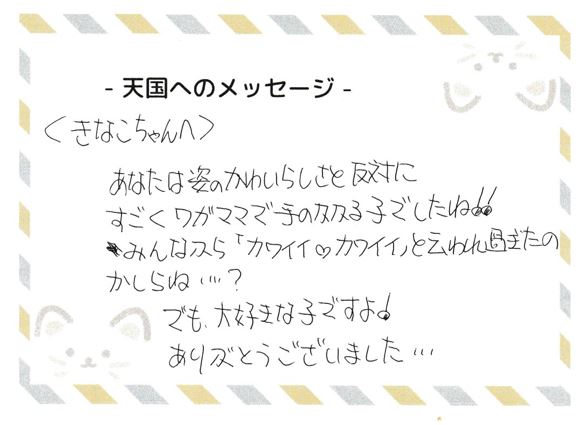 - 天国へのメッセージ -
〈きなこちゃんへ〉
あなたは姿のかわいらしさと反対に
すごくワガママで手のかかる子でしたね!!
みんなから「カワイイ♡カワイイ」と云われ過ぎたの
かしらね…?
でも、大好きな子ですよ!
ありがとうございました…